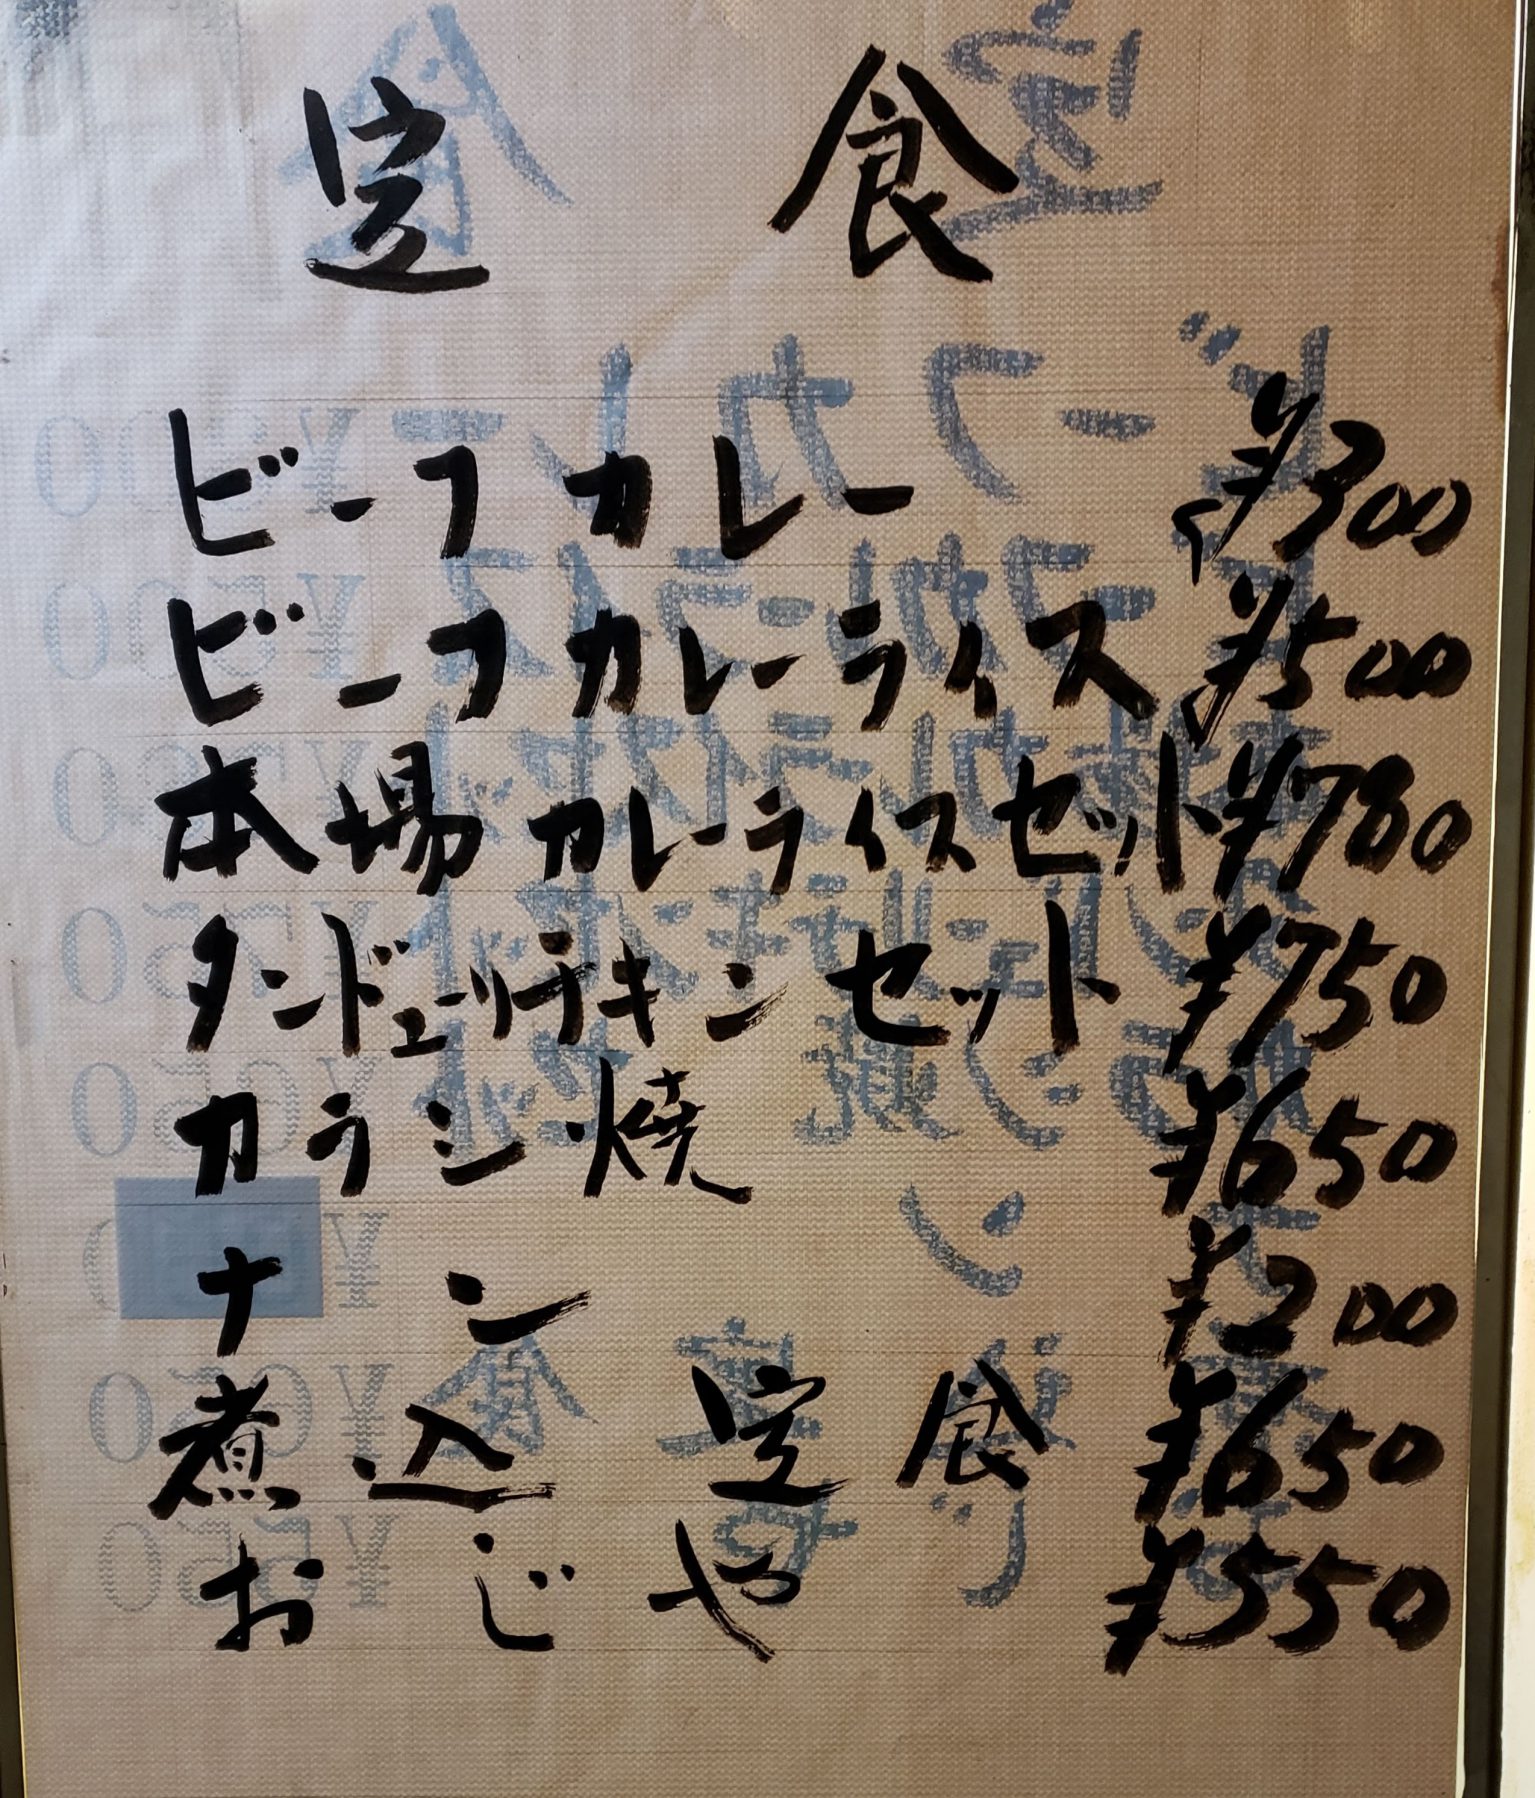 定食
ビーフカレー ¥300
ビーフカレーライス ¥500
本場カレーライスセット ¥780
タンドューリチキンセット ¥750
カラシ焼 ¥650
ナン ¥200
煮込定食 ¥650
おじや ¥550